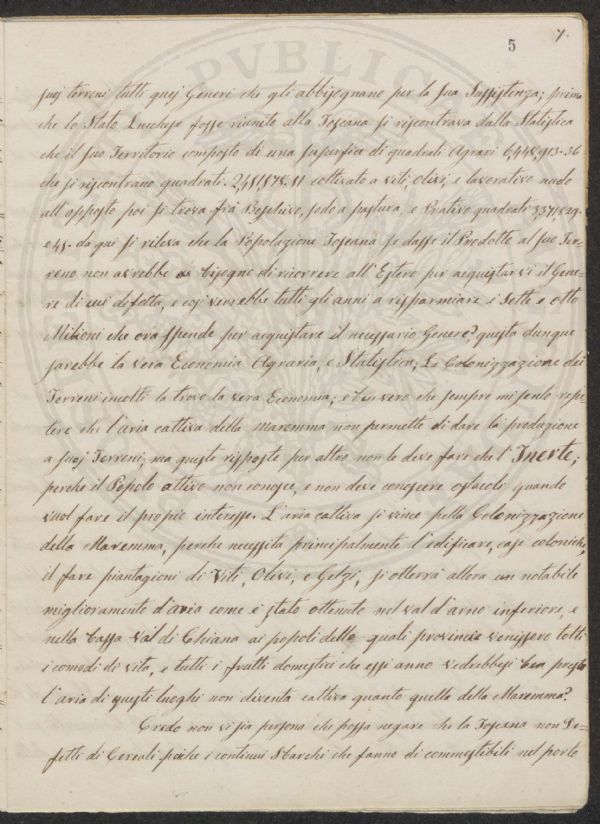 5 7.
suoj terreni tutti quej Generi che gli abbisegnano per la sua Sussistenza; prima
che lo Stato Lucchese fosse riunito alla Toscana si riscontrava dalla Statistica
che il suo Territorio composto di una superfice di quadrati Agrari 6,448,913.36
che si riscontrano quadrati. 2,481,878.11 coltivato a viti, olivi, e laverativo nudo
all'opposto poi si trova fra Boschivo, sodo a pastura, e Prativo quadrati
e 45. da qui si rileva che la Popolazione Toscana se dasse il Prodotto al suo Ter-
reno non avrebbe bisogno di ricorrere all'Estero per acquistarvi il Gene-
re di cui difetta, e cosi verrebbe tutti gli anni a risparmiare i Sette e otto
Milioni che ora spende per acquistare il necessario Genere? questa dunque
sarebbe la vera Economia Agraria, e Statistica; La Colonizzazione dei
Terreni incolti la trovo la vera Economia; e ben vero che sempre mi sento repe
tere che l'aria cattiva della maremma non permette di dare la produzione
a suoj Terreni, ma queste risposte per altro non le deve fare che l'Inerte;
perche il Popolo attivo non conosce, e non deve conoscere ostacoli quando
vuol fare il propio interesse. L'aria cattiva si vince pella Colonizzazione
della Maremma, perche necessita principalmente l'edificare, case coloniche,
il fare piantagioni di Viti, Olivi, e Gelzi, si otterra allora un notabile
miglioramento d'aria come è stato ottenuto nel val d'arno inferiore, e
nella bassa Val di Chiana ai popoli delle quali provincie venissero tolti
i comodi di vita, e tutti i frutti domestici che essi anno vedrebbesi ben presto
l'aria di questi luoghi non diventa cattiva quanto quella della Maremma?
Credo non vi sia persona che possa negare che la Toscana non De-
fetti di Cereali poiche i continui Sbarchi che fanno di commestibili nel porto